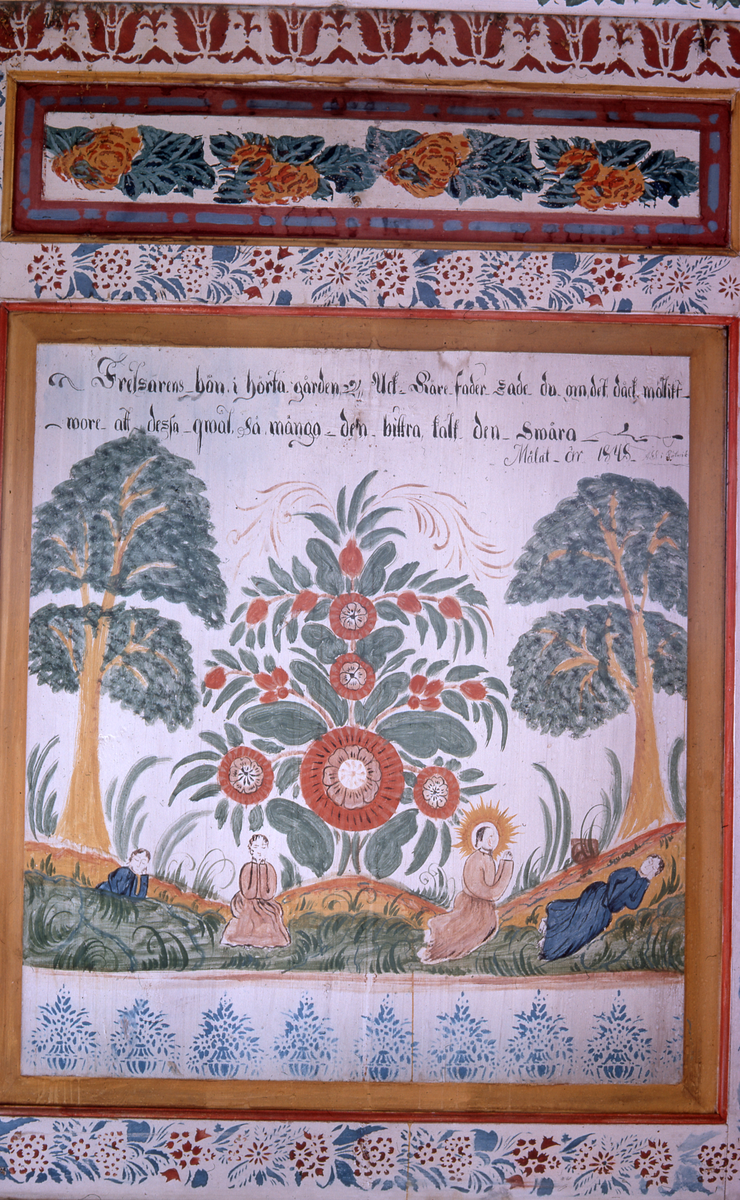 Frelsärens bön i hörta gården Ack Käre fader sade du om det dåck möhlit
wore att dessa qwal så många den bittra kalk den swåra
Målat år 1848